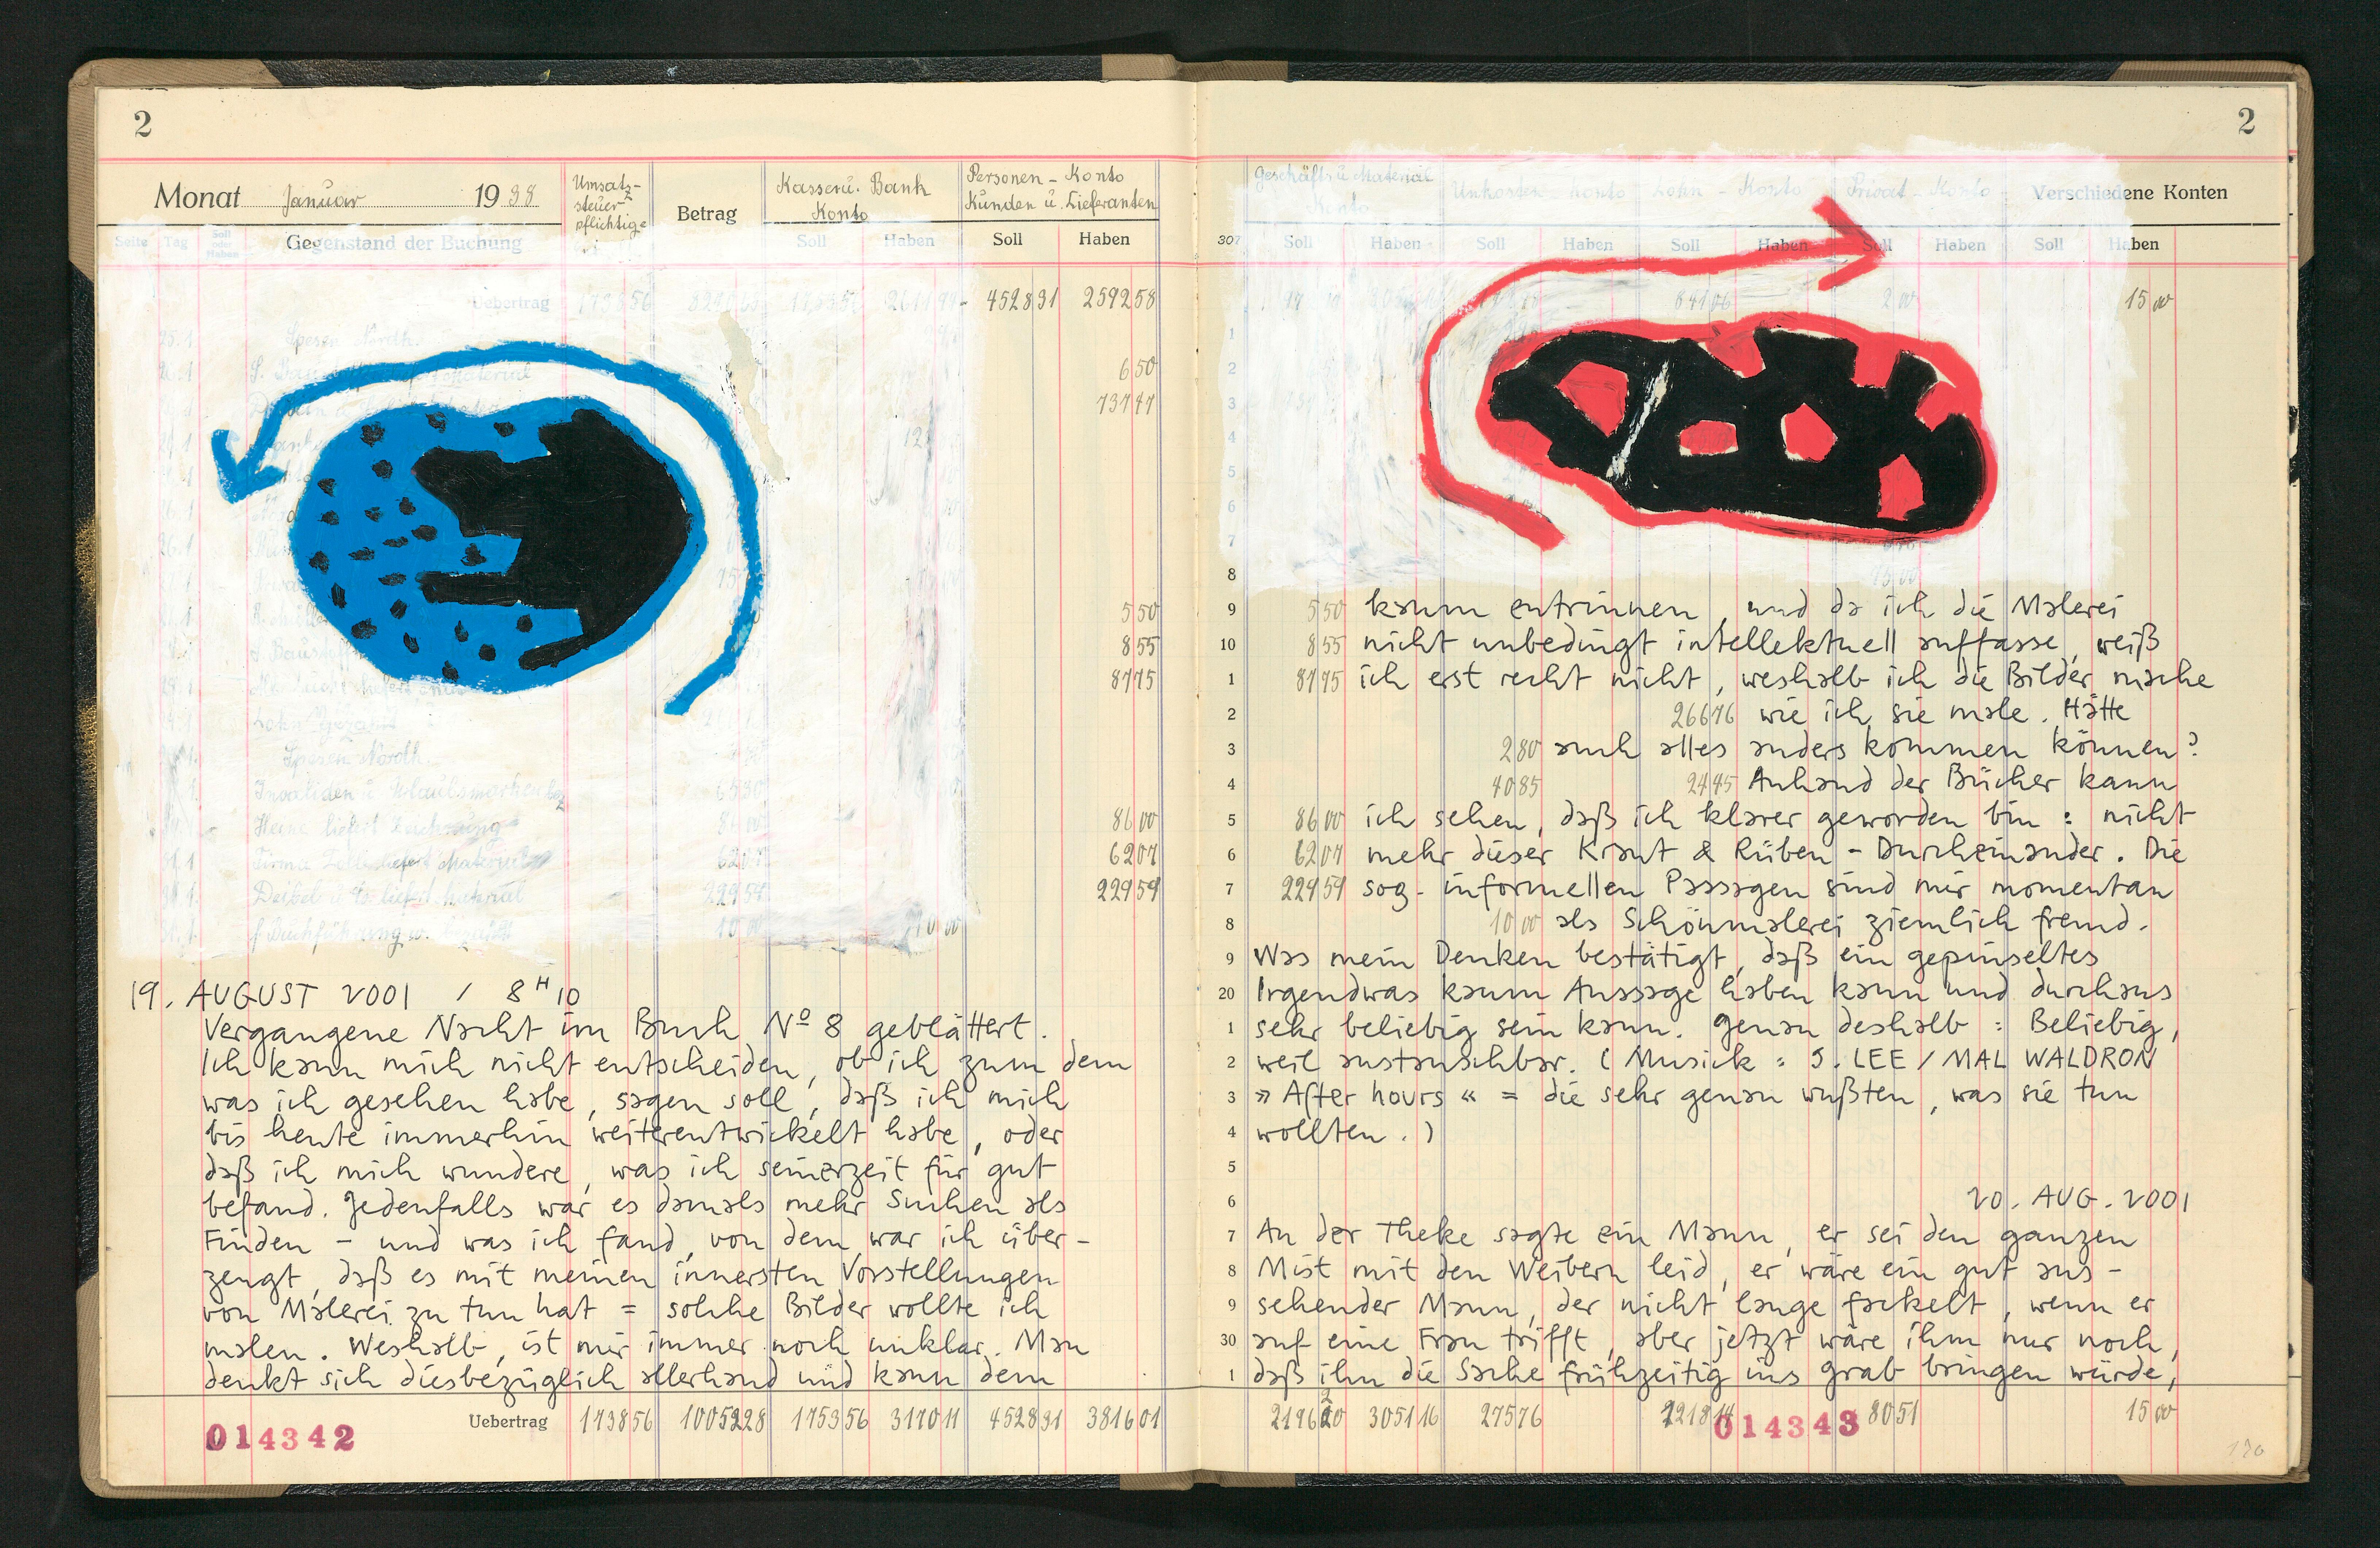 2
Monat Januar 1938
Umsatz-
steuer-
pflichtige
Betrag
Kasse u. Bank
Konto
Personen-Konto
Kunden u. Lieferanten
Seite Tag Soll oder Haben Gegenstand der Buchung
Soll Haben Soll Haben
Uebertrag 1738 56 4528 31 2592 58
25.1 Spesen Nordh.
6 50
737 47
5 50
8 55
87 75
Spesen Nordh.
Invaliden u. 65 30
Heine liefert Zeichnung 86 00 86 00
Firma liefert Material 62 07 62 07
liefert Material 229 59 229 59
10 00 10 00
19. AUGUST 2001 / 8 H 10
Vergangene Nacht im Buch Nº 8 geblättert.
Ich kann mich nicht entscheiden, ob ich zum dem
was ich gesehen habe, sagen soll, daß ich mich
bis heute immerhin weiterentwickelt habe, oder
daß ich mich wundere, was ich seinerzeit für gut
befand. Jedenfalls war es damals mehr Suchen als
Finden - und was ich fand, von dem war ich über-
zeugt, daß es mit meinen innersten Vorstellungen
von Malerei zu tun hat = solche Bilder wollte ich
malen. Weshalb, ist mir immer noch unklar. Man
denkt sich diesbezüglich allerhand und kann dem
Uebertrag 1738 56 10052 28 1753 56 3170 11 4528 31 3816 01
014342
2
Geschäfts u. Material
Konto
Unkosten - Konto Lohn - Konto Privat - Konto Verschiedene Konten
307 Soll Haben Soll Haben Soll Haben Soll Haben Soll Haben
841 06 2 00 15 00
1
2
3
4
5
6
7
8
9 5 50 kaum entrinnen, und da ich die Malerei
10 8 55 nicht unbedingt intellektuell auffasse, weiß
1 87 75 ich erst recht nicht, weshalb ich die Bilder mache
2 266 76 wie ich sie male. Hätte
3 2 80 auch alles anders kommen können?
4 40 85 24 45 Anhand der Bücher kann
5 86 00 ich sehen, daß ich klarer geworden bin : nicht
6 62 07 mehr dieser Kraut & Rüben - Durcheinander. Die
7 229 59 sog. informellen Passagen sind mir momentan
8 10 00 als Schönmalerei ziemlich fremd.
9 Was mein Denken bestätigt, daß ein gepinseltes
20 Irgendwas kaum Aussage haben kann und durchaus
1 sehr beliebig sein kann. Genau deshalb : Beliebig,
2 weil austauschbar. ( Musick : J. LEE / MAL WALDRON
3 » After hours « = die sehr genau wußten, was sie tun
4 wollten. )
5
6 20. AUG. 2001
7 An der Theke sagte ein Mann, er sei den ganzen
8 Mist mit den Weibern leid, er wäre ein gut aus-
9 sehender Mann, der nicht lange fackelt, wenn er
30 auf eine Frau trifft, aber jetzt wäre ihm nur noch,
1 daß ihn die Sache frühzeitig ins Grab bringen würde,
3051 16 275 76 80 51 15 00
014343